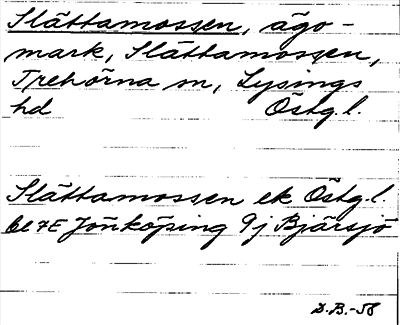 Slättamossen, ägo-
mark, Slättamossen,
Trehörna sn, Lysings
hd Östg.l.
Slättamossen ek Östg.l.
bl 7E Jönköping 9j Bjärsjö
D.B.-58